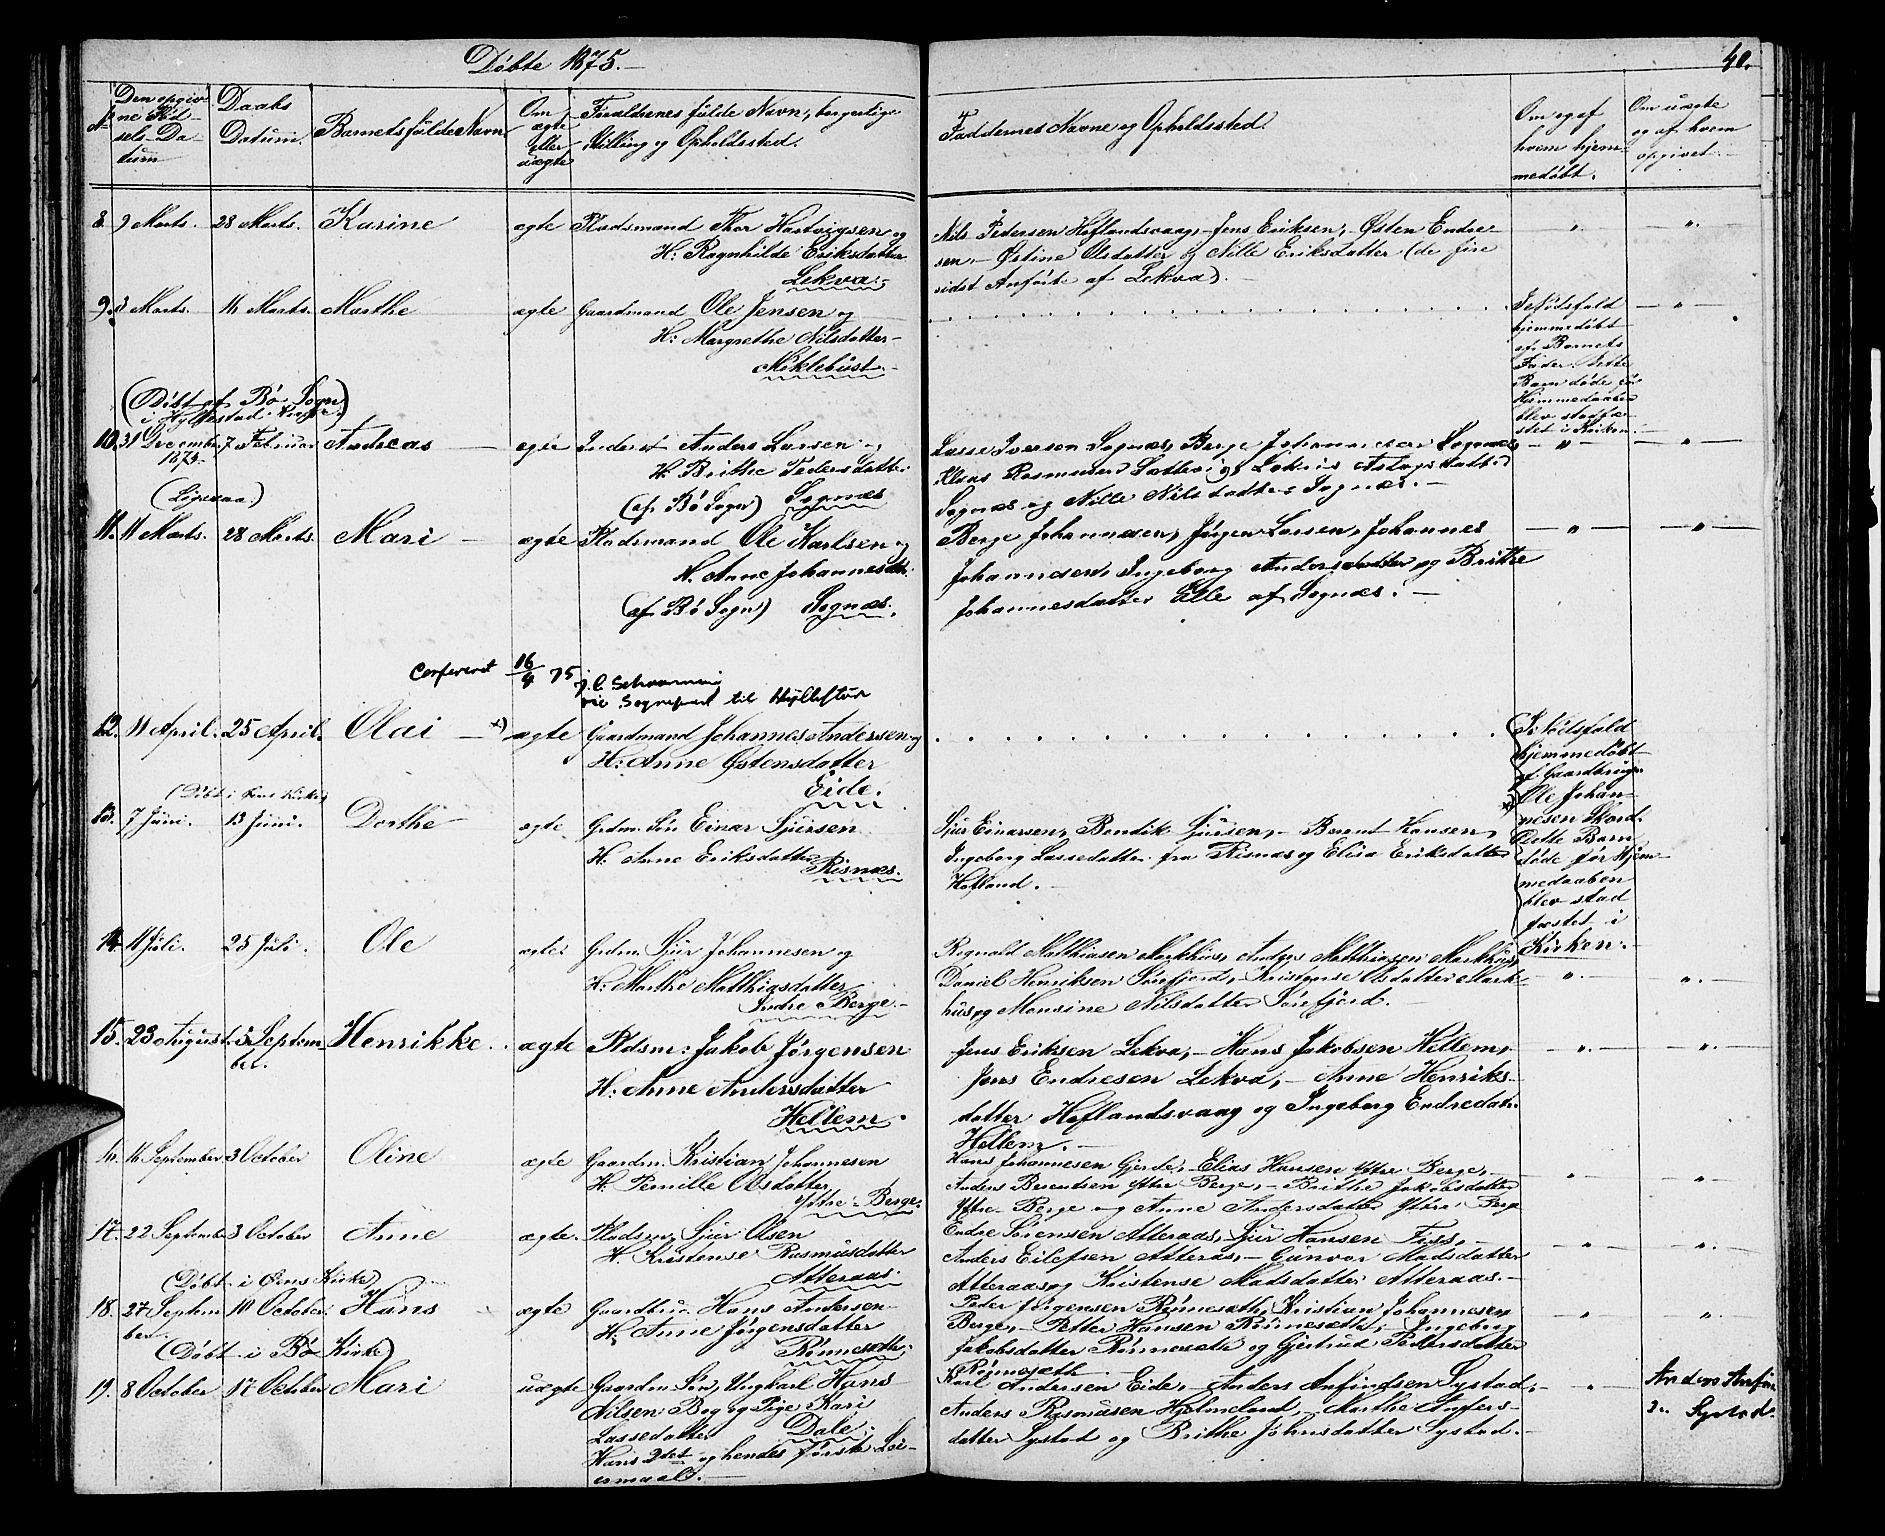 Döbte 1875.
40.
No
Den opgiv-
ne Fød-
sels-Da-
tum
Daabs
Datum.
Barnets fulde Navn
Om
ægte
eller
uægte
Forældrenes fulde Navn, borgerlige
Stilling og Opholdssted.
Faddernes Navne og Opholdssted.
Om og af
hvem hjem-
medøbt.
Om uægte
og af hvem
opgivet.
8. 9 Marts. 28 Marts. Karine ægte Pladsmand Thor Hartvigsen og
H: Ragnhilde Eriksdatter
Lekva.
Nils Pedersen Høflandsvaag, Jens Eriksen, Østen Endre-
sen, Østine Olsdatter og Nille Eriksdatter (de fire
sidst Anførte af Lekva).
9. 3 Marts. 14 Marts. Marthe ægte Gaardmand Ole Jensen og
H: Margrethe Nilsdatter
Miklebust.
I Nødsfald
hjemmedøbt
af Barnets
Fader. Dette
Barn døde før
Hjemmedaaben
blev stadfæ-
stet i Kirken.
(Døbt af Bø Sogn
i Hyllestad Kirke)
10. 31 December 7 Februar Andreas ægte Inderst Anders Larsen og
H. Brithe Pedersdatter
(af Bø Sogn) Sognæs
Lasse Iversen Sognæs, Berge Johannesen Sognæs,
Sognæs og Nille Nilsdatter Sognæs.
11. 11 Marts. 28 Marts. Mari ægte Pladsmand Ole Karlsen og
H. Anne Johannesdtr.
(af Bø Sogn) Sognæs.
Berge Johannesen, Jørgen Larsen, Johannes
Johannesen, Ingeborg Andersdatter og Brithe
Johannesdatter Alle af Sognæs.
Confereret 16/4 75
12. 11 April. 25 April. Olai ægte Gaardmand Johannes Andersen og
H: Anne Østensdatter
Eide.
I Nødsfald
hjemmedøbt
af Gaardbruger
Ole Johan-
nesen Skord.
Dette Barn
døde før Hjem-
medaaben
blev stad
fæstet i
Kirken.
(Døbt i Øens Kirke)
13. 7 Juni. 13 Juni. Dorthe ægte Grdm. Søn Einar Sjursen
H. Anne Eriksdatter
Risnæs.
Sjur Einarsen, Bendik Sjursen, Berent Hansen,
Ingeborg Lassedatter fra Risnæs og Elisa Eriksdatter
Høfland.
14. 11 Juli. 25 Juli. Ole ægte Grdm. Sjur Johannesen og
H. Marthe Matthiasdatter
Indre Berge.
Ragnald Matthiasen Markhus, Anders Matthiasen Markhus,
Daniel Henriksen Sørefjord, Kristense Olsdatter Mark-
hus og Monsine Nilsdatter Sørefjord.
15. 23 August. Septem-
ber. Henrikke. ægte Pldsm: Jakob Jørgensen
H: Anne Andersdatter
Hellem.
Jens Eriksen Lekva, Hans Jakobsen Hellem,
Jens Endresen Lekva, Anne Henriks-
datter Høflandsvaag og Ingeborg Endredatr.
Hellem.
16. 14 September 3 October Oline ægte Gaardm. Kristian Johannesen
H. Pernille Olsdatter
Yttre Berge.
Hans Johannesen Gjerde, Elias Hansen Yttre Berge,
Anders Berentsen Yttre Berge, Brithe Jakobsdatter
Yttre Berge og Anne Andersdatter Yttre Berge
17. 22 September 3 October Anne ægte. Pladsm. Sjur Olsen
H. Kristense Rasmusdatter
Atteraas.
Endre Sørensen Atteraas, Sjur Hansen
Anders Eilefsen Atteraas, Gunvor Madsdatter
Atteraas og Kristense Madsdatter Atteraas.
(Døbt i Øens Kirke)
18. 27 Septem-
ber. 10 October. Hans ægte Gaardbru. Hans Andersen
H. Anne Jørgensdatter
Rønnesæth.
Peder Jørgensen Rønnesæth, Kristian Johannesen
Berge, Petter Hansen Rønnesæth, Ingeborg
Jakobsdatter Rønnesæth og Gjertrud Pettersdatter
Rønnesæth
(Døbt i Bø Kirke)
19. 8 October 17 October Mari uægte Gaardm. Søn, Ungkarl Hans
Nilsen Bøe og Pige Kari
Lassedatter Dale.
Hans 2det og hendes første Lei-
ermaal.
Karl Andersen Eide, Anders Anfindsen Systad,
Anders Rasmusen Hjelmeland, Marthe Anders-
datter Systad og Brithe Johnsdatter Systad.
Anders Anfin-
Systad.